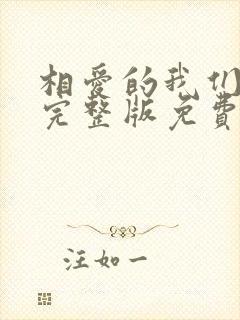 相爱的我们
完整版免费
汪如一